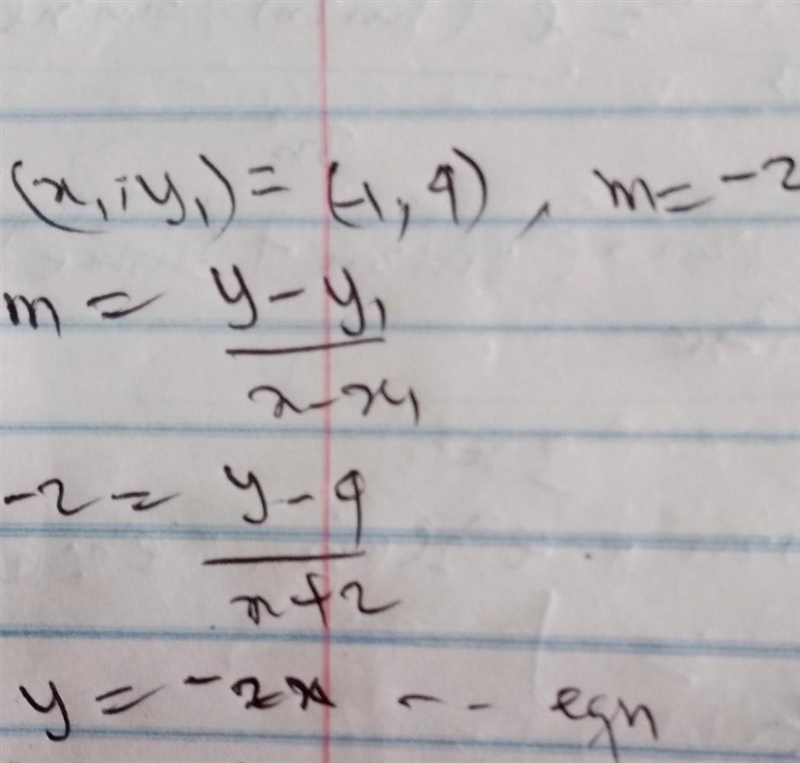 (x₁, y₁) = (-1, 4), m = -2
m = y - y₁
x - x₁
-2 = y - 4
x + 2
y = -2x -- eqn